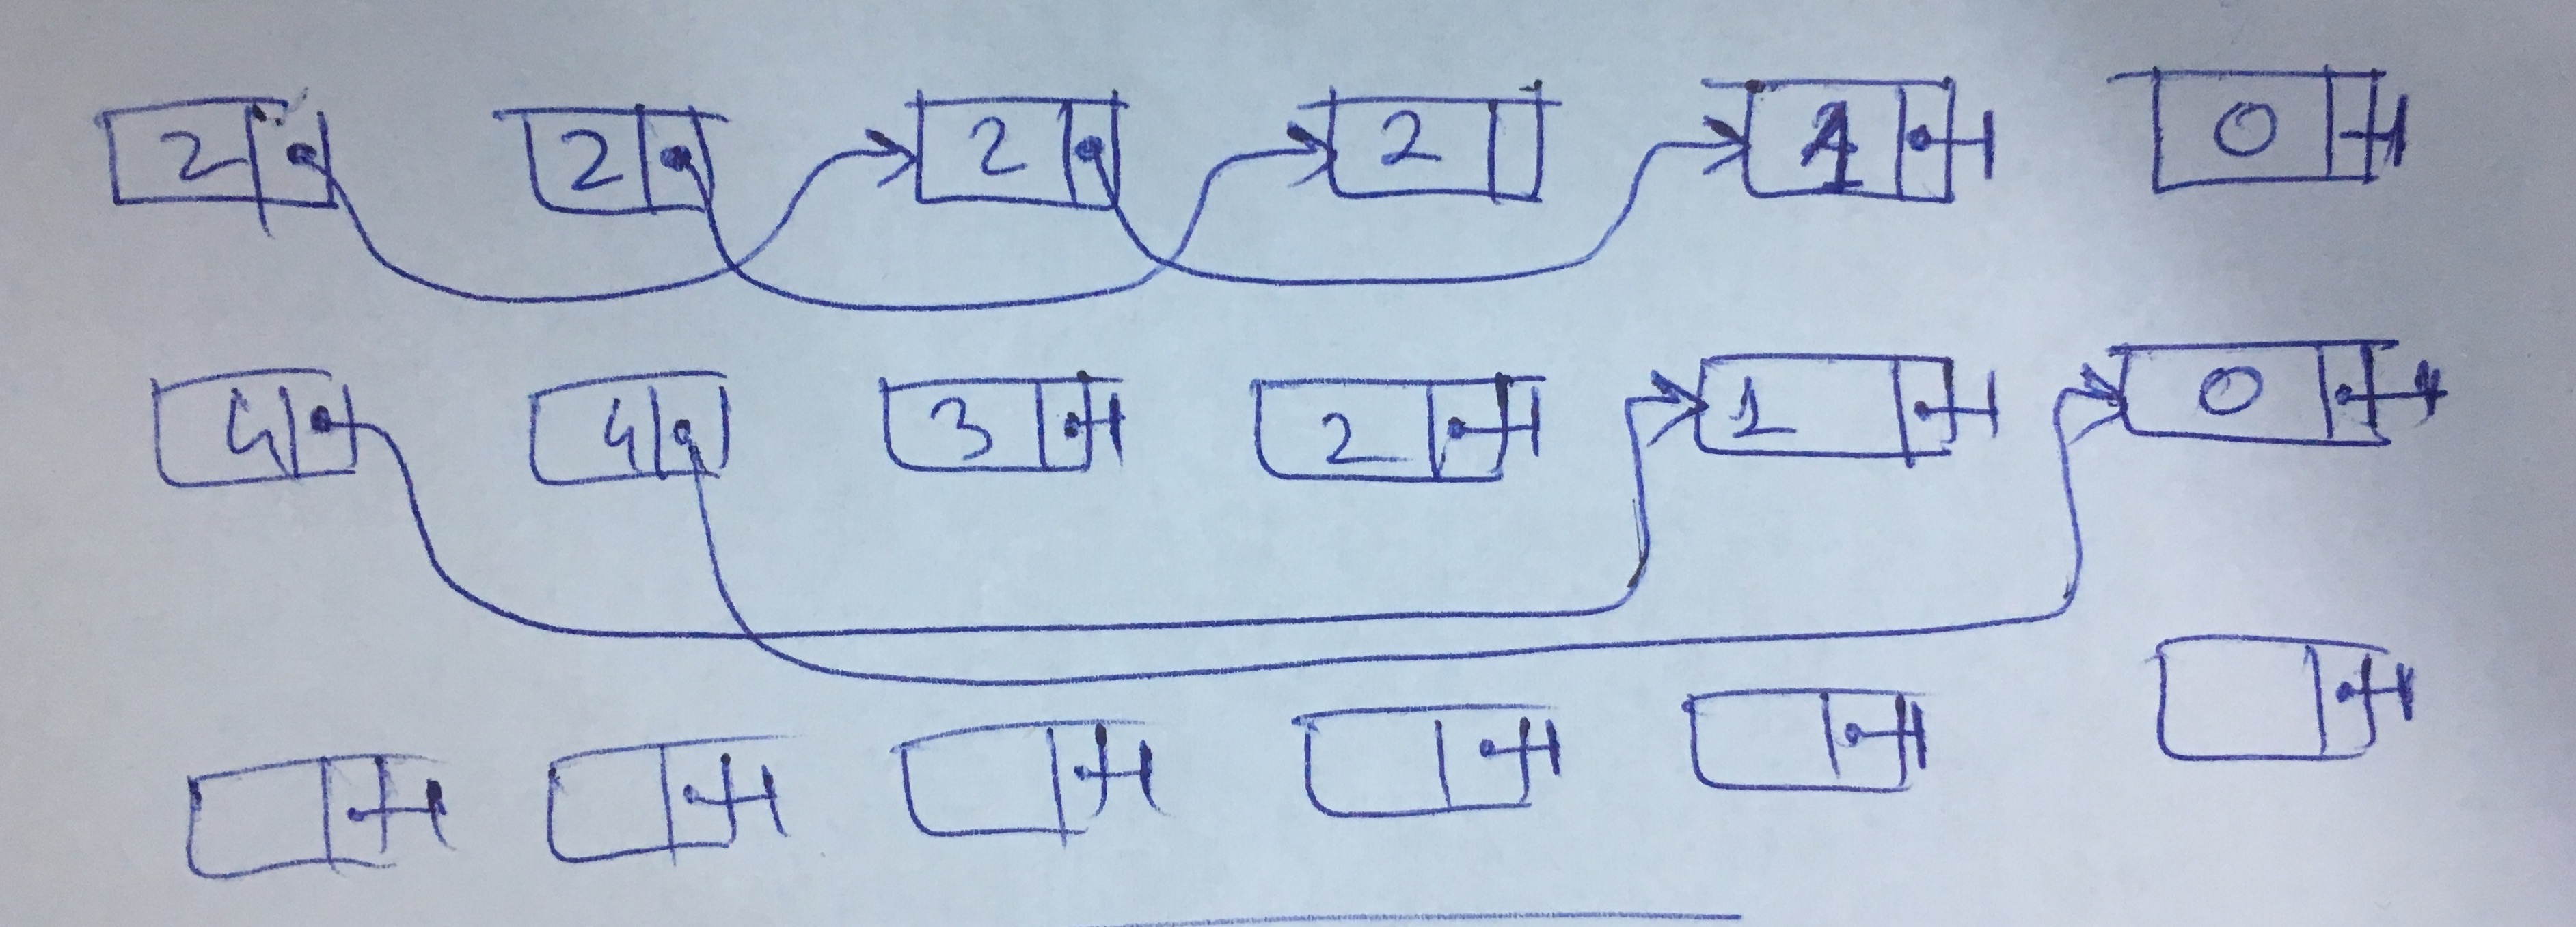 2 2 2 2 1 0
4 4 3 2 1 0